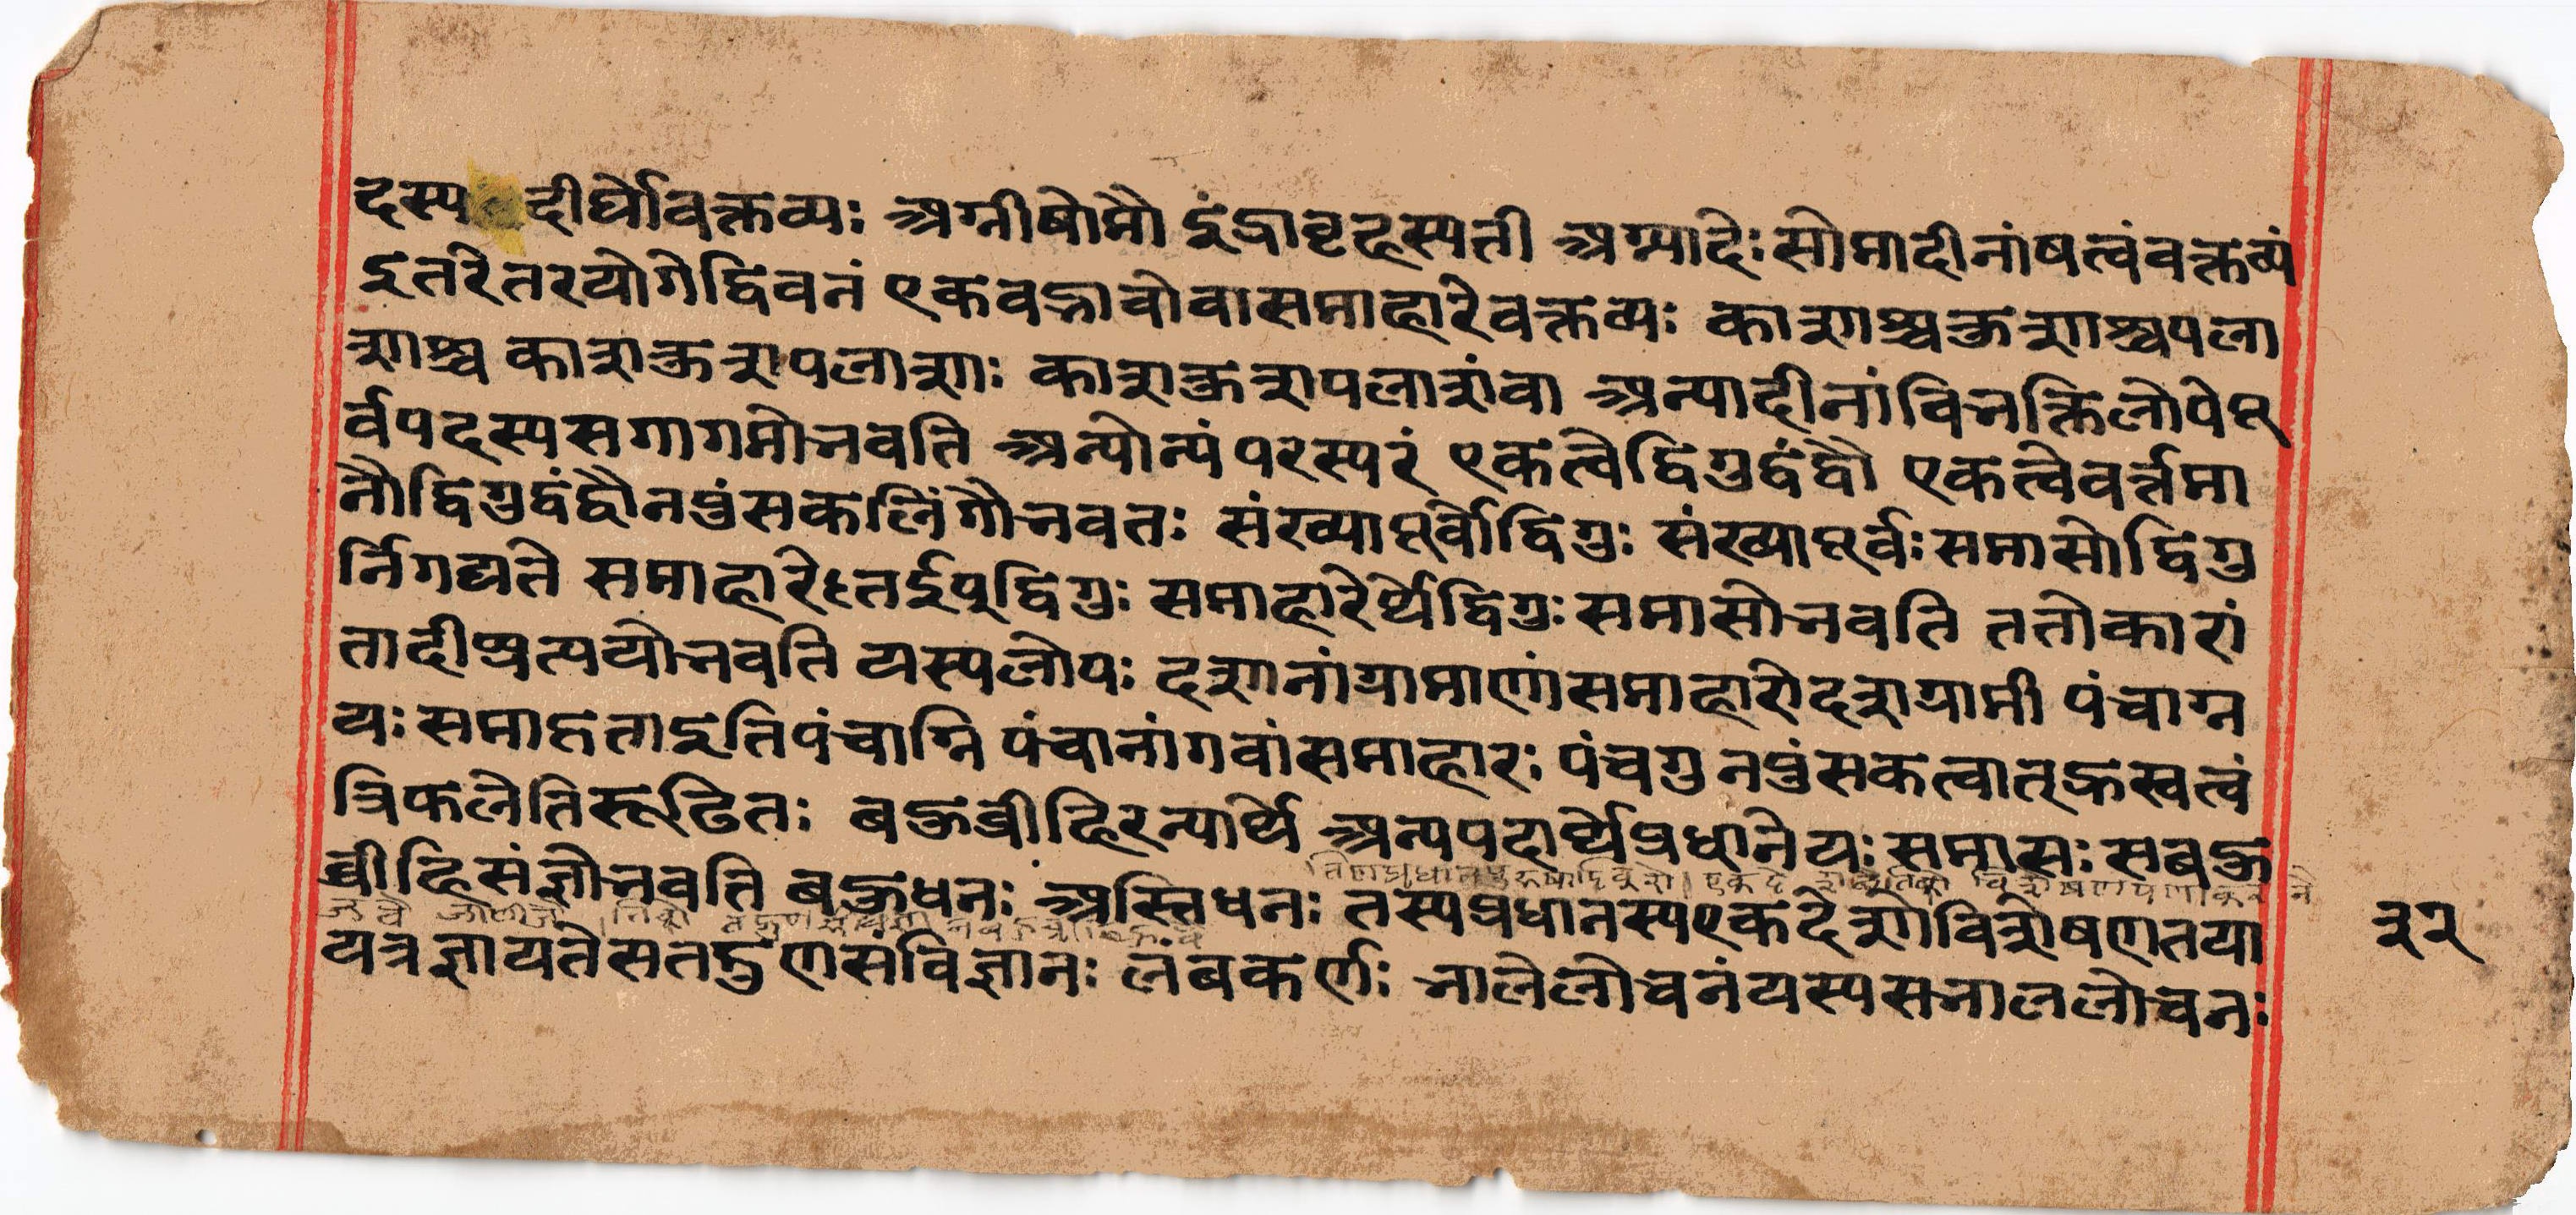 दस्य दीर्घोवक्तव्यः अग्नीषोमौ इंद्राबृहस्पती अग्न्यादेः सोमादीनांषत्वंवक्तव्यं
इतरेतरयोगेद्विवनं एकवद्भावोवासमाहारेवक्तव्यः काशाश्चकुशाश्चपला
शाश्च काशकुशपलाशाः काशकुशपलाशंवा अन्यादीनांविभक्तिलोपेपू
र्वपदस्यसगागमोभवति अन्योन्यंपरस्परं एकत्वेद्विगुद्वंद्वौ एकत्वेवर्त्तमा
नौद्विगुद्वंद्वौनपुंसकलिंगौभवतः संख्यापूर्वोद्विगुः संख्यापूर्वः समासोद्विगु
र्निगद्यते समाहारेःतईप्द्विगुः समाहारेर्थेद्विगुः समासोभवति ततोकारां
तादीप्प्रत्ययोभवति यस्यलोपः दशानांग्रामाणांसमाहारोदशग्रामी पंचाग्न
यः समाहृताइतिपंचाग्नि पंचानांगवांसमाहारः पंचगु नपुंसकत्वात्ह्रस्वत्वं
त्रिफलेतिरूढितः बहुव्रीहिरन्यार्थे अन्यपदार्थेप्रधानेयः समासः सबहु
व्रीहिसंज्ञोभवति बहुधनः अस्तिधनः तस्यप्रधानस्यएकदेशोविशेषणतया
यत्रज्ञायतेसतद्गुणसंविज्ञानः लंबकर्णः भालेलोचनंयस्यसभाललोचनः
३२